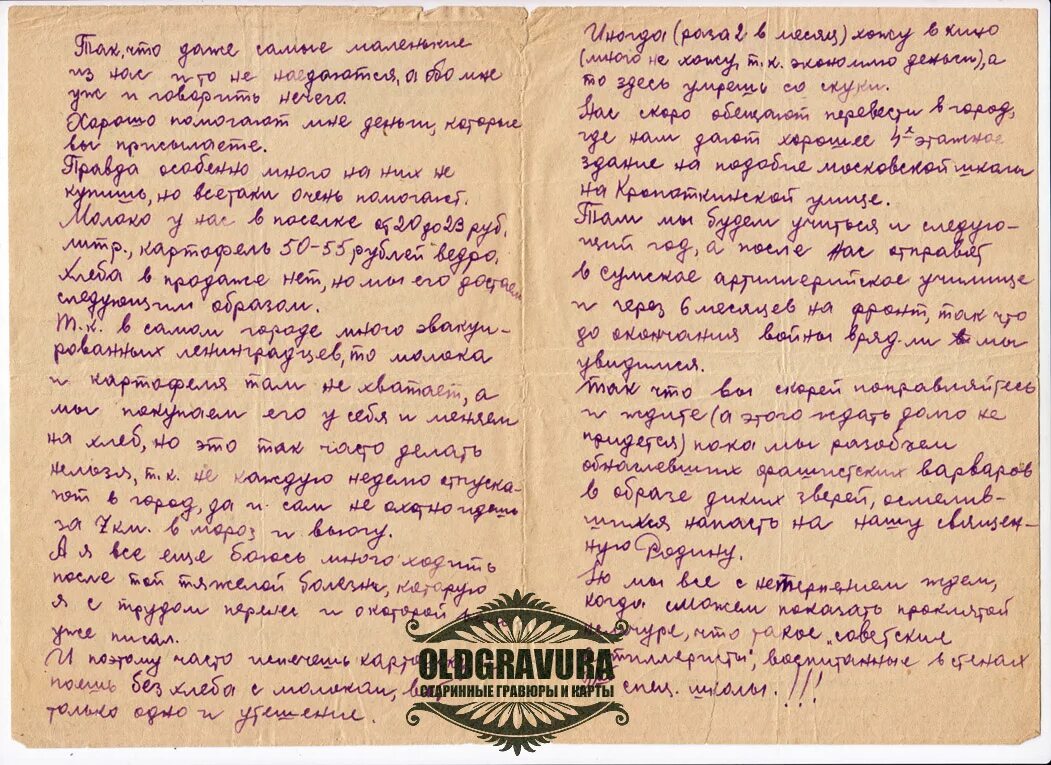 Так, что даже самые маленькие
из нас и то не наедаются, а обо мне
уж и говорить нечего.
Хорошо помогают мне деньги, которые
вы присылаете.
Правда особенно много на них не
купишь, но всетаки очень помогают.
Молоко у нас в поселке от 20 до 23 руб.
литр., картофель 50-55 рублей ведро,
хлеба в продаже нет, но мы его достаем
следующим образом.
Т.к. в самом городе много эвакуи-
рованных ленинградцев, то молока
и картофеля там не хватает, а
мы покупаем его у себя и меняем
на хлеб, но это так часто делать
нельзя, т.к. не каждую неделю отпуска-
ют в город, да и сам не охотно идешь
за 7 км. в мороз и вьюгу.
А я все еще боюсь много ходить
после той тяжелой болезни, которую
я с трудом перенес и о которой
уже писал.
И поэтому часто испечешь
поешь без хлеба с молоком,
только одно и утешение.
Иногда (раза 2 в месяц) хожу в кино
(много не хожу, т.к. экономлю деньги), а
то здесь умрешь со скуки.
Нас скоро обещают перевести в город,
где нам дают хорошее 4х этажное
здание на подобие московской школы
на Кропоткинской улице.
Там мы будем учиться и следую-
щий год, а после нас отправят
в сумское артиллерийское училище
и через 6 месяцев на фронт, так что
до окончания войны вряд-ли мы
увидимся.
Так что вы скорей поправляйтесь
и ждите (а этого ждать долго не
придется) пока мы разобьем
обнаглевших фашистских варваров
в образе диких зверей, осмелив-
шихся напасть на нашу священ-
ную Родину.
Но мы все с нетерпением ждем,
когда сможем показать проклятой
что такое "советские
воспитанные в стенах
спец. школы.!!!
OLDGRAVURA
СТАРИННЫЕ ГРАВЮРЫ И КАРТЫ